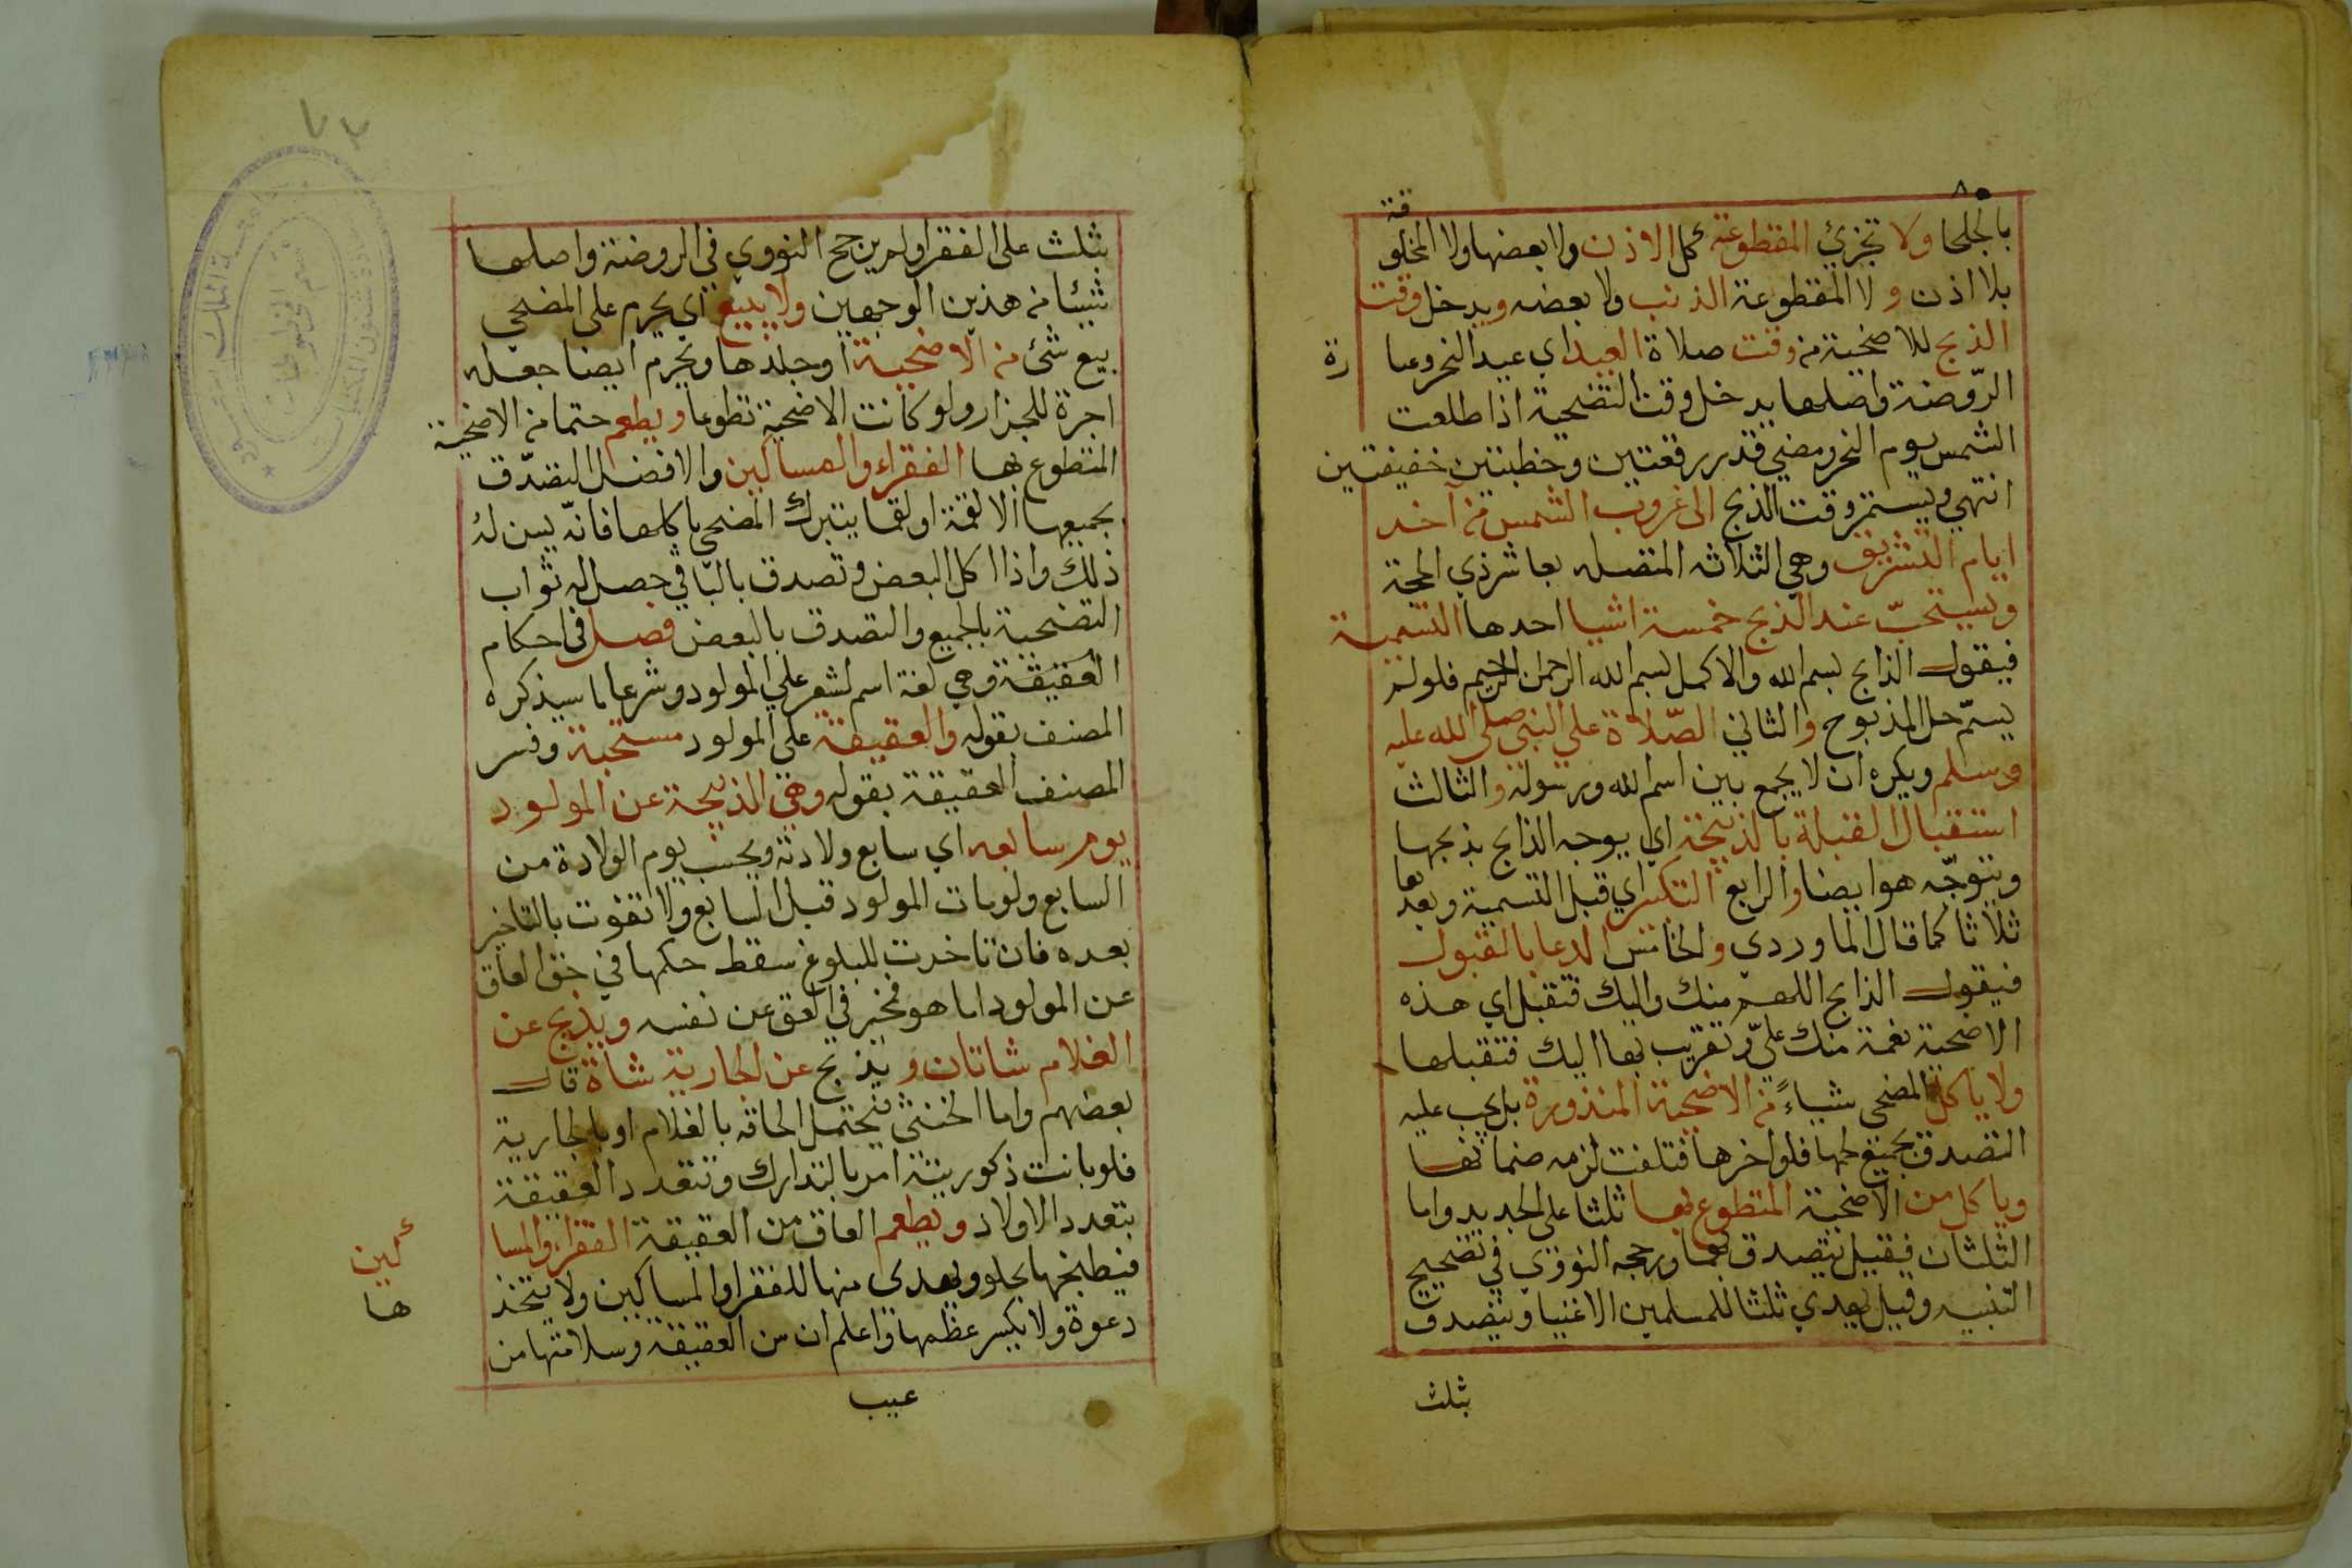 بالجلحا ولا تجزئ المقطوعة كل الاذن ولا بعضها ولا المخلو
قة
بلا اذن ولا المقطوعة الذنب ولا بعضه ويدخل وقت
الذبح للاضحية من وقت صلاة العيد اي عيد النحر وعبا
رة
الرّوضة واصلها يدخل وقت التضحية اذا طلعت
الشمس يوم النحر ومضي قدر ركعتين وخطبتين خفيفتين
انتهي ويستمر وقت الذبح الى غروب الشمس من آخر
ايام التشريق وهي الثلاثه المتصله بعاشر ذي الحجة
ويستحبّ عند الذبح خمسة اشيا احدها التسمية
فيقول الذابح بسم الله والاكمل بسم الله الرحمن الرحيم فلو لم
يسمّ حل المذبوح والثاني الصّلاة علي النبي صلي الله عليه
وسلم ويكره ان لا يجمع بين اسم الله ورسوله والثالث
استقبال القبلة بالذبيحة اي يوجه الذابح بذبحها
ويتوجّه هو ايضا والرابع التكبير اي قبل التسمية وبعد
ها
ثلاثا كما قال الماوردي والخامس الدعا بالقبول
فيقول الذابح اللهم منك واليك فتقبل اي هذه
الاضحية نعمة منك عليّ وتقريب بها اليك فتقبلها
ولا ياكل المضحي شياءً من الاضحية المنذورة بل يجب عليه
التصدق بجميع لحمها فلو اخرها فتلفت لزمه ضمانها
وياكل من الاضحية المتطوع بها ثلثا على الجديد واما
الثلثان فقيل يتصدق بهما ورجحه النووي في تصحيح
التنبيه وقيل يهدي ثلثا للمسلمين الاغنيا ويتصدق
بثلث
بثلث على الفقرا ولم يرجح النووي في الروضة واصلها
شيئا من هذين الوجهين ولا يبيع اي يحرم على المضحي
بيع شئ من الاضحية او جلدها ويحرم ايضا جعله
اجرة للجزار ولو كانت الاضحية تطوعا ويطعم حتما من الاضحية
المتطوع بها الفقراء والمساكين والافضل التصدّق
بجميعها الا لقمة او لقما يتبرك المضحي باكلها فانه يسن له
ذلك واذا اكل البعض وتصدق بالباقي حصل له ثواب
التضحية بالجميع والتصدق بالبعض فصل في احكام
العقيقة وهي لغة اسم لشعر علي المولود وشرعا ما سيذكره
المصنف بقوله والعقيقة على المولود مستحبة وفسر
المصنف العقيقة بقوله وهي الذبيحة عن المولود
يوم سابعه اي سابع ولادته ويحسب يوم الولادة من
السابع ولو مات المولود قبل السابع ولا تفوت بالتاخير
بعده فان تاخرت للبلوغ سقط حكمها في حق العاق
عن المولود اما هو فمخير في العق عن نفسه ويذبح عن
الغلام شاتان ويذبح عن الجارية شاة قال
بعضهم واما الخنثى فيحتمل الحاقه بالغلام او بالجارية
فلو بانت ذكوريته امر بالتدارك وتتعدد العقيقة
بتعدد الاولاد ويطعم العاق من العقيقة الفقراء والمسا
كين
فيطبخها بحلو ويهدى منها للفقرا والمساكين ولا يتخذ
ها
دعوة ولا يكسر عظمها واعلم ان سن العقيقة وسلامتها من
عيب